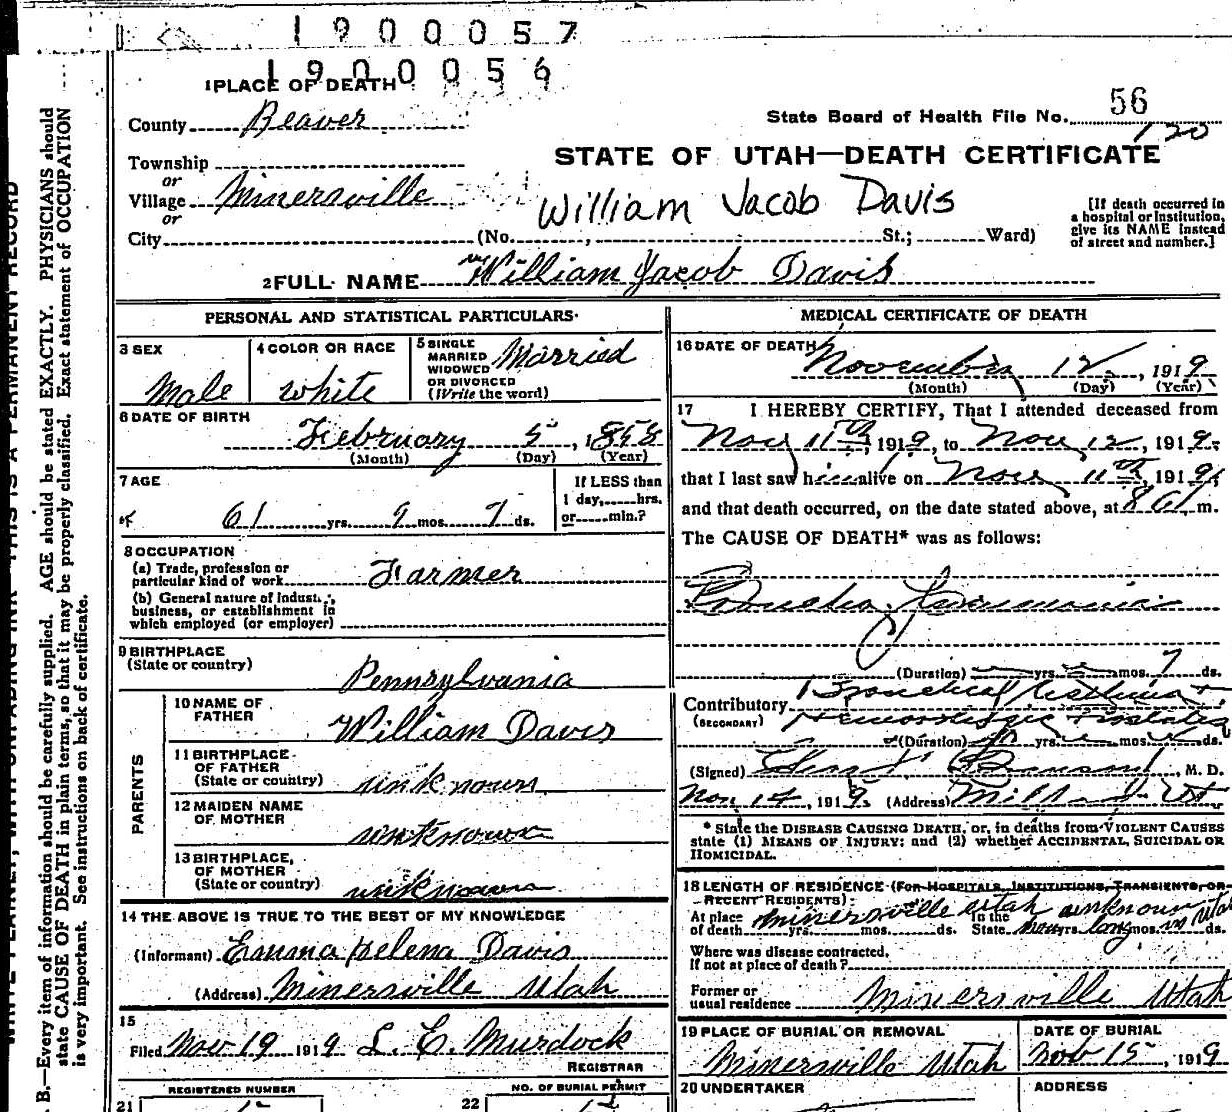 1900057
1900056
1 PLACE OF DEATH
County Beaver
State Board of Health File No. 56
120
Township
or
Village Minersville
or
City (No. , St.; Ward)
STATE OF UTAH—DEATH CERTIFICATE
William Jacob Davis
[If death occurred in
a hospital or institution,
give its NAME instead
of street and number.]
2 FULL NAME William Jacob Davis
PERSONAL AND STATISTICAL PARTICULARS
3 SEX
Male
4 COLOR OR RACE
White
5 SINGLE
MARRIED
WIDOWED
OR DIVORCED
(Write the word)
Married
6 DATE OF BIRTH
February 5, 1858
(Month) (Day) (Year)
7 AGE
61 yrs. 9 mos. 7 ds.
If LESS than
1 day, hrs.
or min.?
8 OCCUPATION
(a) Trade, profession or
particular kind of work Farmer
(b) General nature of Indust.,
business, or establishment in
which employed (or employer)
9 BIRTHPLACE
(State or country)
Pennsylvania
PARENTS
10 NAME OF
FATHER
William Davis
11 BIRTHPLACE
OF FATHER
(State or country) unknown
12 MAIDEN NAME
OF MOTHER
unknown
13 BIRTHPLACE,
OF MOTHER
(State or country) unknown
14 THE ABOVE IS TRUE TO THE BEST OF MY KNOWLEDGE
(Informant) Emma Helena Davis
(Address) Minersville Utah
15
Filed Nov 19 1919 L. E. Murdock
REGISTRAR
REGISTERED NUMBER
21
NO. OF BURIAL PERMIT
22
MEDICAL CERTIFICATE OF DEATH
16 DATE OF DEATH
November 12, 1919
(Month) (Day) (Year)
17 I HEREBY CERTIFY, That I attended deceased from
Nov 11th, 1919, to Nov 12, 1919,
that I last saw him alive on Nov 11th, 1919,
and that death occurred, on the date stated above, at m.
The CAUSE OF DEATH* was as follows:
Pneumonia
(Duration) yrs. mos. 7 ds.
Contributory Bronchial Asthma +
(SECONDARY)
(Duration) yrs. mos. ds.
(Signed) , M. D.
Nov. 14, 1919. (Address) Milford Ut
* State the DISEASE CAUSING DEATH, or, in deaths from VIOLENT CAUSES
state (1) MEANS OF INJURY; and (2) whether ACCIDENTAL, SUICIDAL OR
HOMICIDAL.
18 LENGTH OF RESIDENCE (FOR HOSPITALS, INSTITUTIONS, TRANSIENTS, OR
RECENT RESIDENTS):
At place Minersville Utah In the unknown
of death yrs. mos. ds. State how yrs. long mos. in Utah ds.
Where was disease contracted,
If not at place of death?
Former or
usual residence Minersville Utah
19 PLACE OF BURIAL OR REMOVAL
Minersville Utah
DATE OF BURIAL
Nov 15, 1919
20 UNDERTAKER
ADDRESS
THIS IS A PERMANENT RECORD
B.—Every item of information should be carefully supplied. AGE should be stated EXACTLY. PHYSICIANS should
state CAUSE OF DEATH in plain terms, so that it may be properly classified. Exact statement of OCCUPATION
is very important. See instructions on back of certificate.